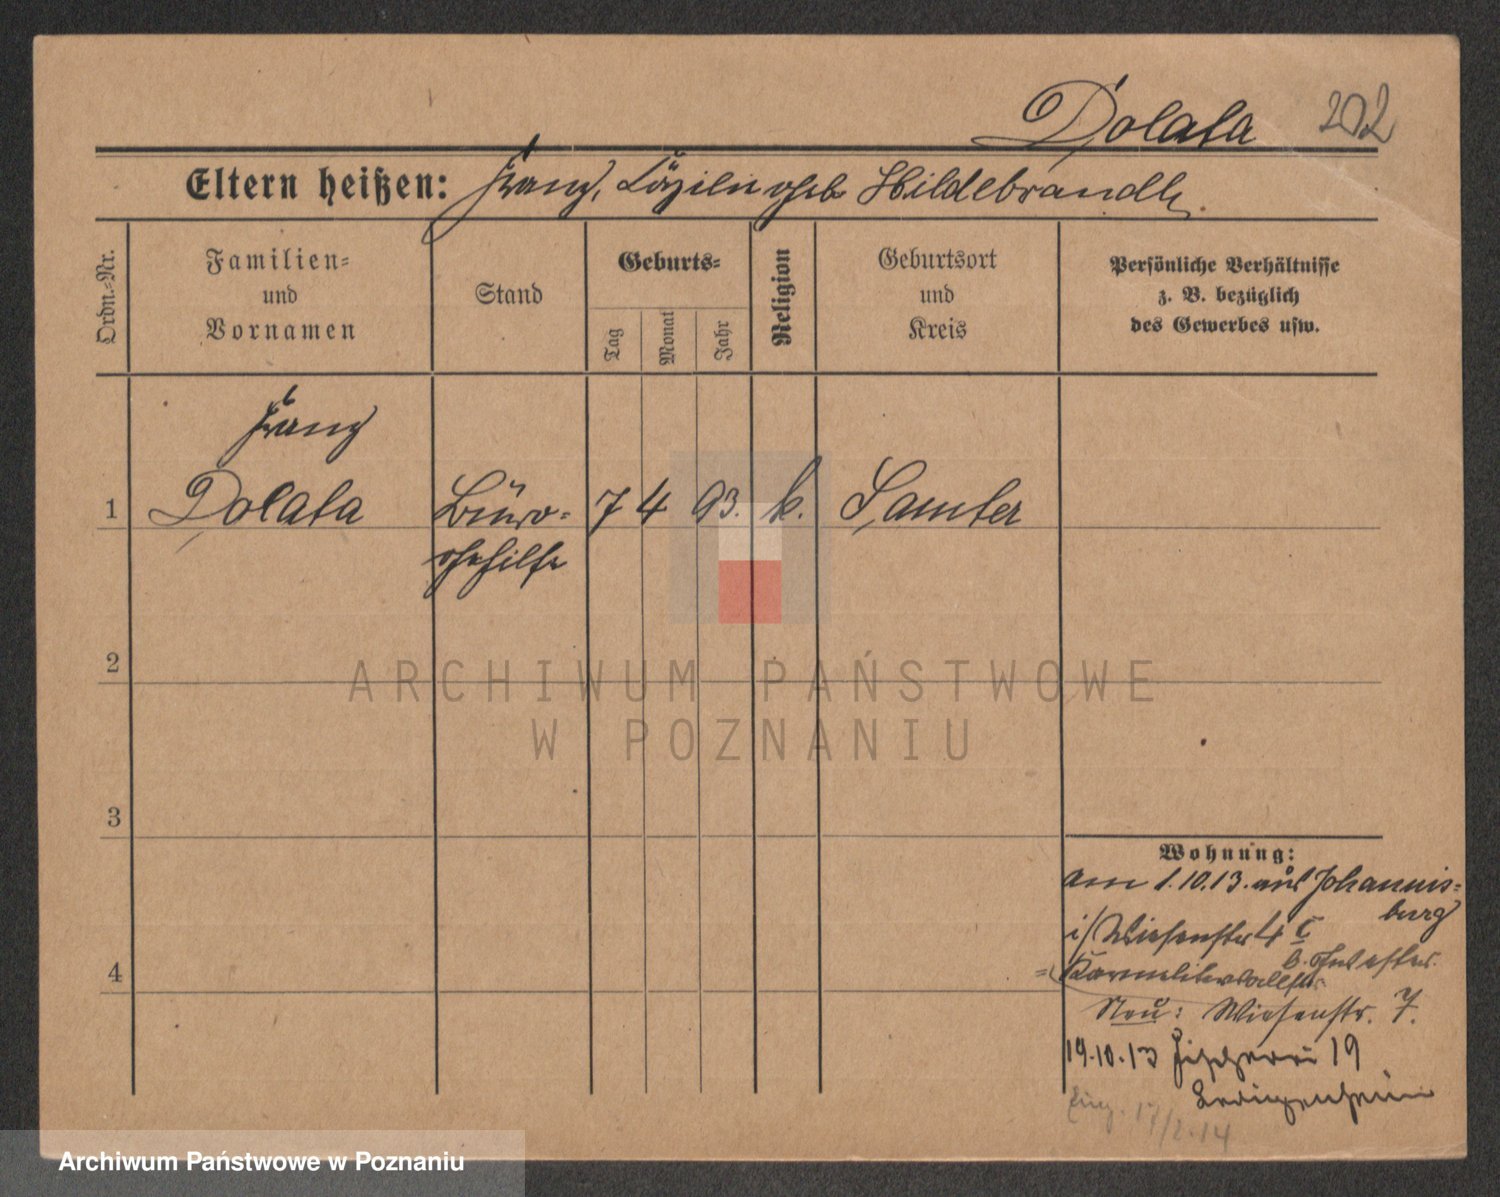 Dolata 202
Eltern heißen: Franz, Cäzilie geb Hildebrandt.
Ordn.-Nr.
Familien-
und
Vornamen
Stand
Geburts-
Tag
Monat
Jahr
Religion
Geburtsort
und
Kreis
Persönliche Verhältnisse
z. B. bezüglich
des Gewerbes usw.
Franz
1 Dolata Büro- 7 4 93. k. Samter
gehilfe
2
3
4
Wohnung:
am 1.10.13. aus Johannis-
burg
i/ Wiesenstr 4
b.
Neu: Wiesenstr. 7.
19.10.13 Fischerei 19
Ledigenheim
17/2.14
ARCHIWUM PAŃSTWOWE
W POZNANIU
Archiwum Państwowe w Poznaniu